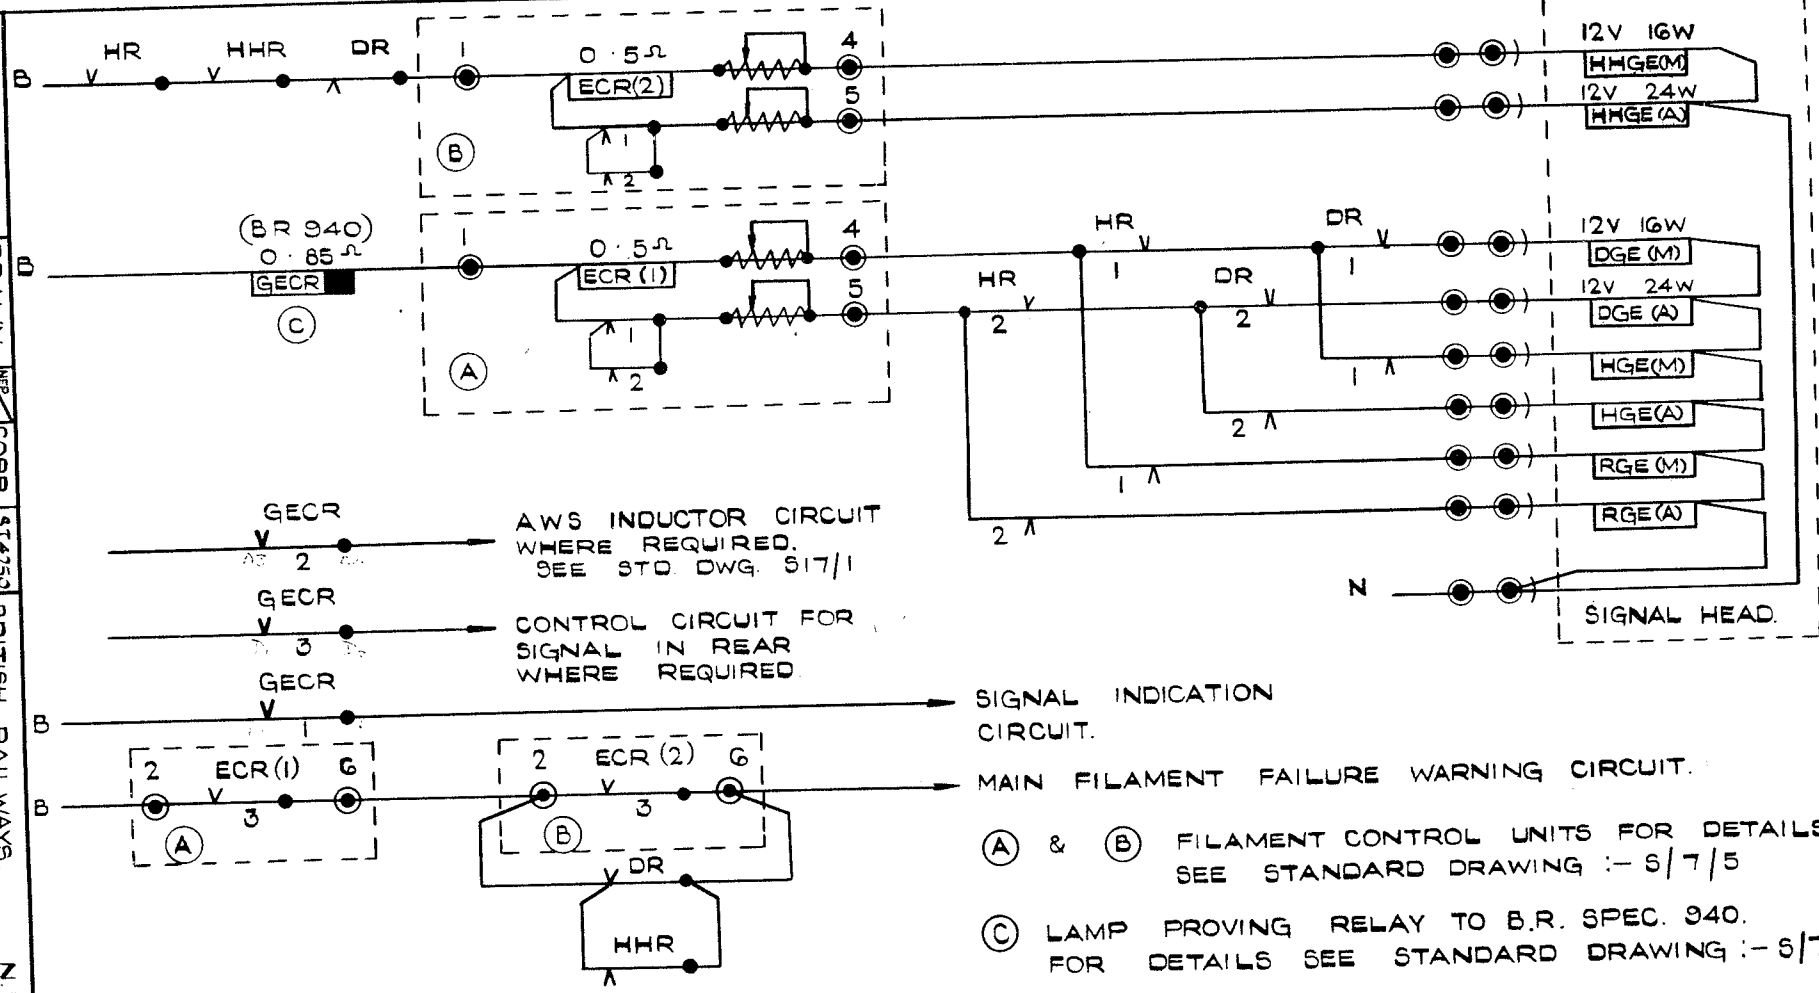 HR HHR DR
B
1
0.5Ω
ECR(2)
4
5
1
2
B
12V 16W
HHGE(M)
12V 24W
HHGE(A)
(BR 940)
0.85Ω
GECR
C
B
1
0.5Ω
ECR(1)
4
5
1
2
A
HR
1
DR
1
HR
2
DR
2
1
2
1
2
12V 16W
DGE(M)
12V 24W
DGE(A)
HGE(M)
HGE(A)
RGE(M)
RGE(A)
N
SIGNAL HEAD.
GECR
2
AWS INDUCTOR CIRCUIT
WHERE REQUIRED.
SEE STD. DWG. S17/1
GECR
3
CONTROL CIRCUIT FOR
SIGNAL IN REAR
WHERE REQUIRED.
GECR
B
1
SIGNAL INDICATION
CIRCUIT.
B
2 ECR(1) 6
3
A
2 ECR(2) 6
3
B
DR
HHR
MAIN FILAMENT FAILURE WARNING CIRCUIT.
A & B FILAMENT CONTROL UNITS FOR DETAILS
SEE STANDARD DRAWING :- S/7/5
C LAMP PROVING RELAY TO B.R. SPEC. 940.
FOR DETAILS SEE STANDARD DRAWING :- S/7
BRITISH RAILWAYS